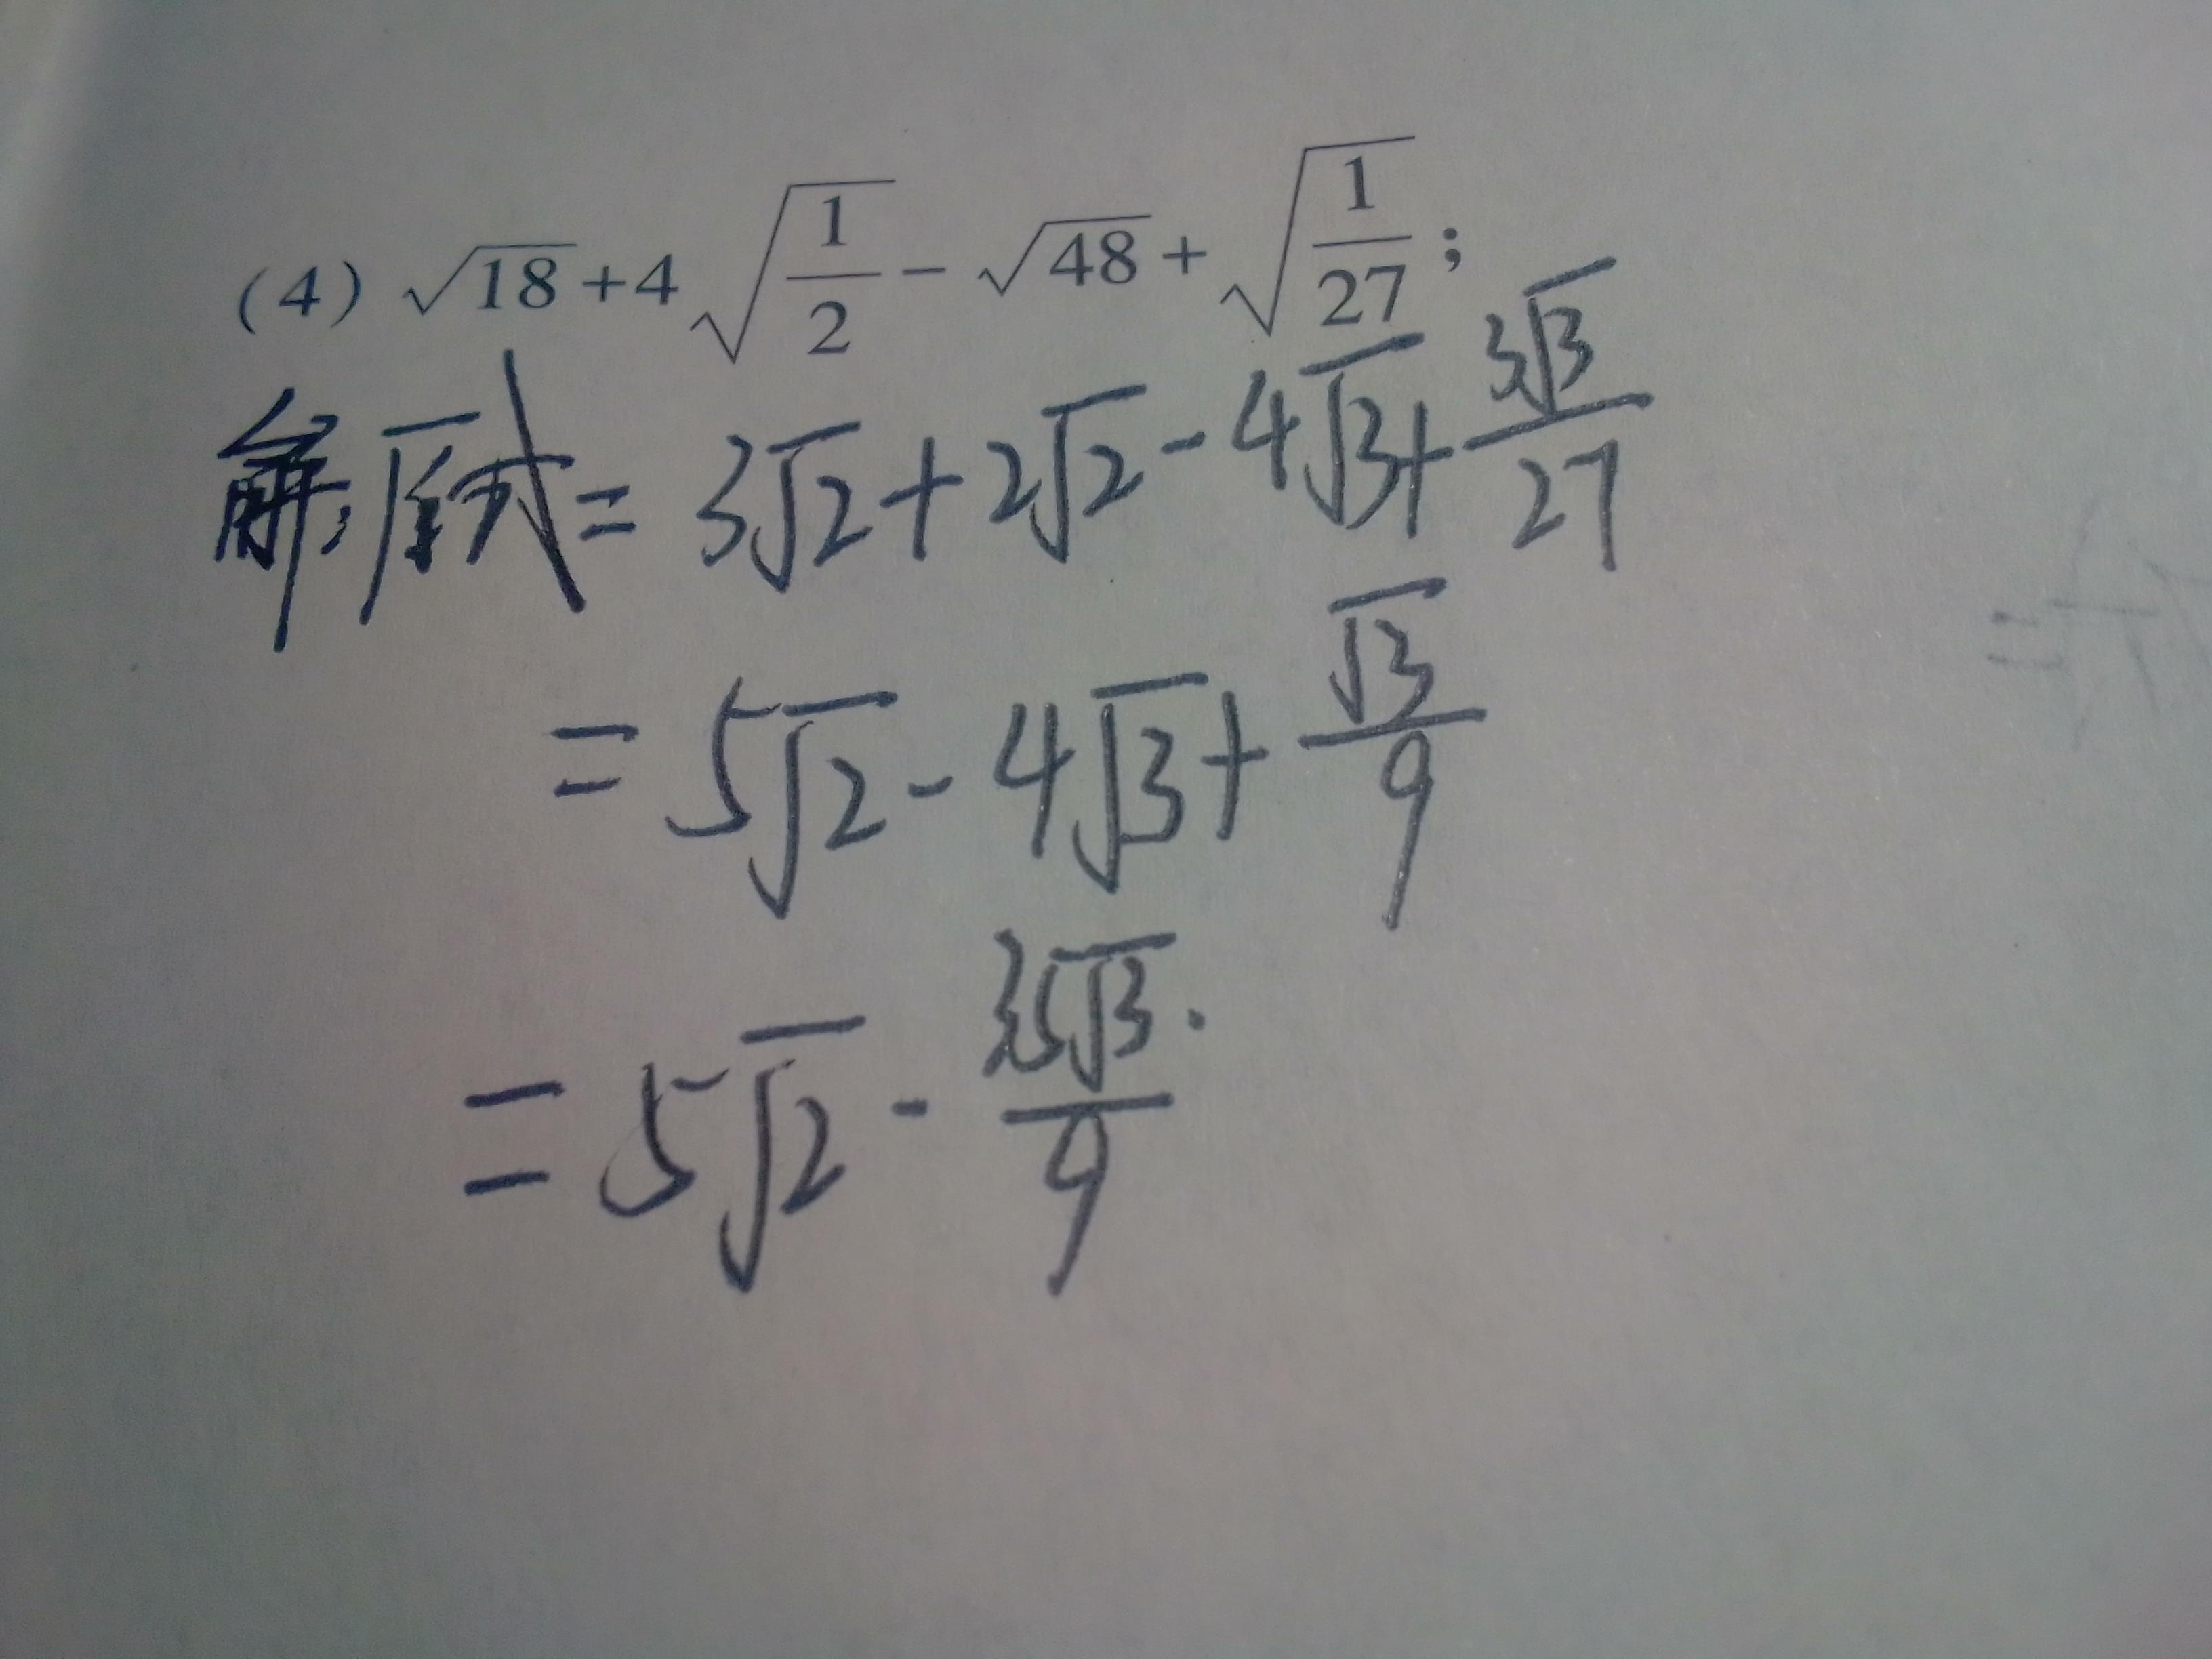 (4) √18+4√(1/2)-√48+√(1/27);
解:原式=3√2+2√2-4√3+3√3/27
=5√2-4√3+√3/9
=5√2-35√3/9.